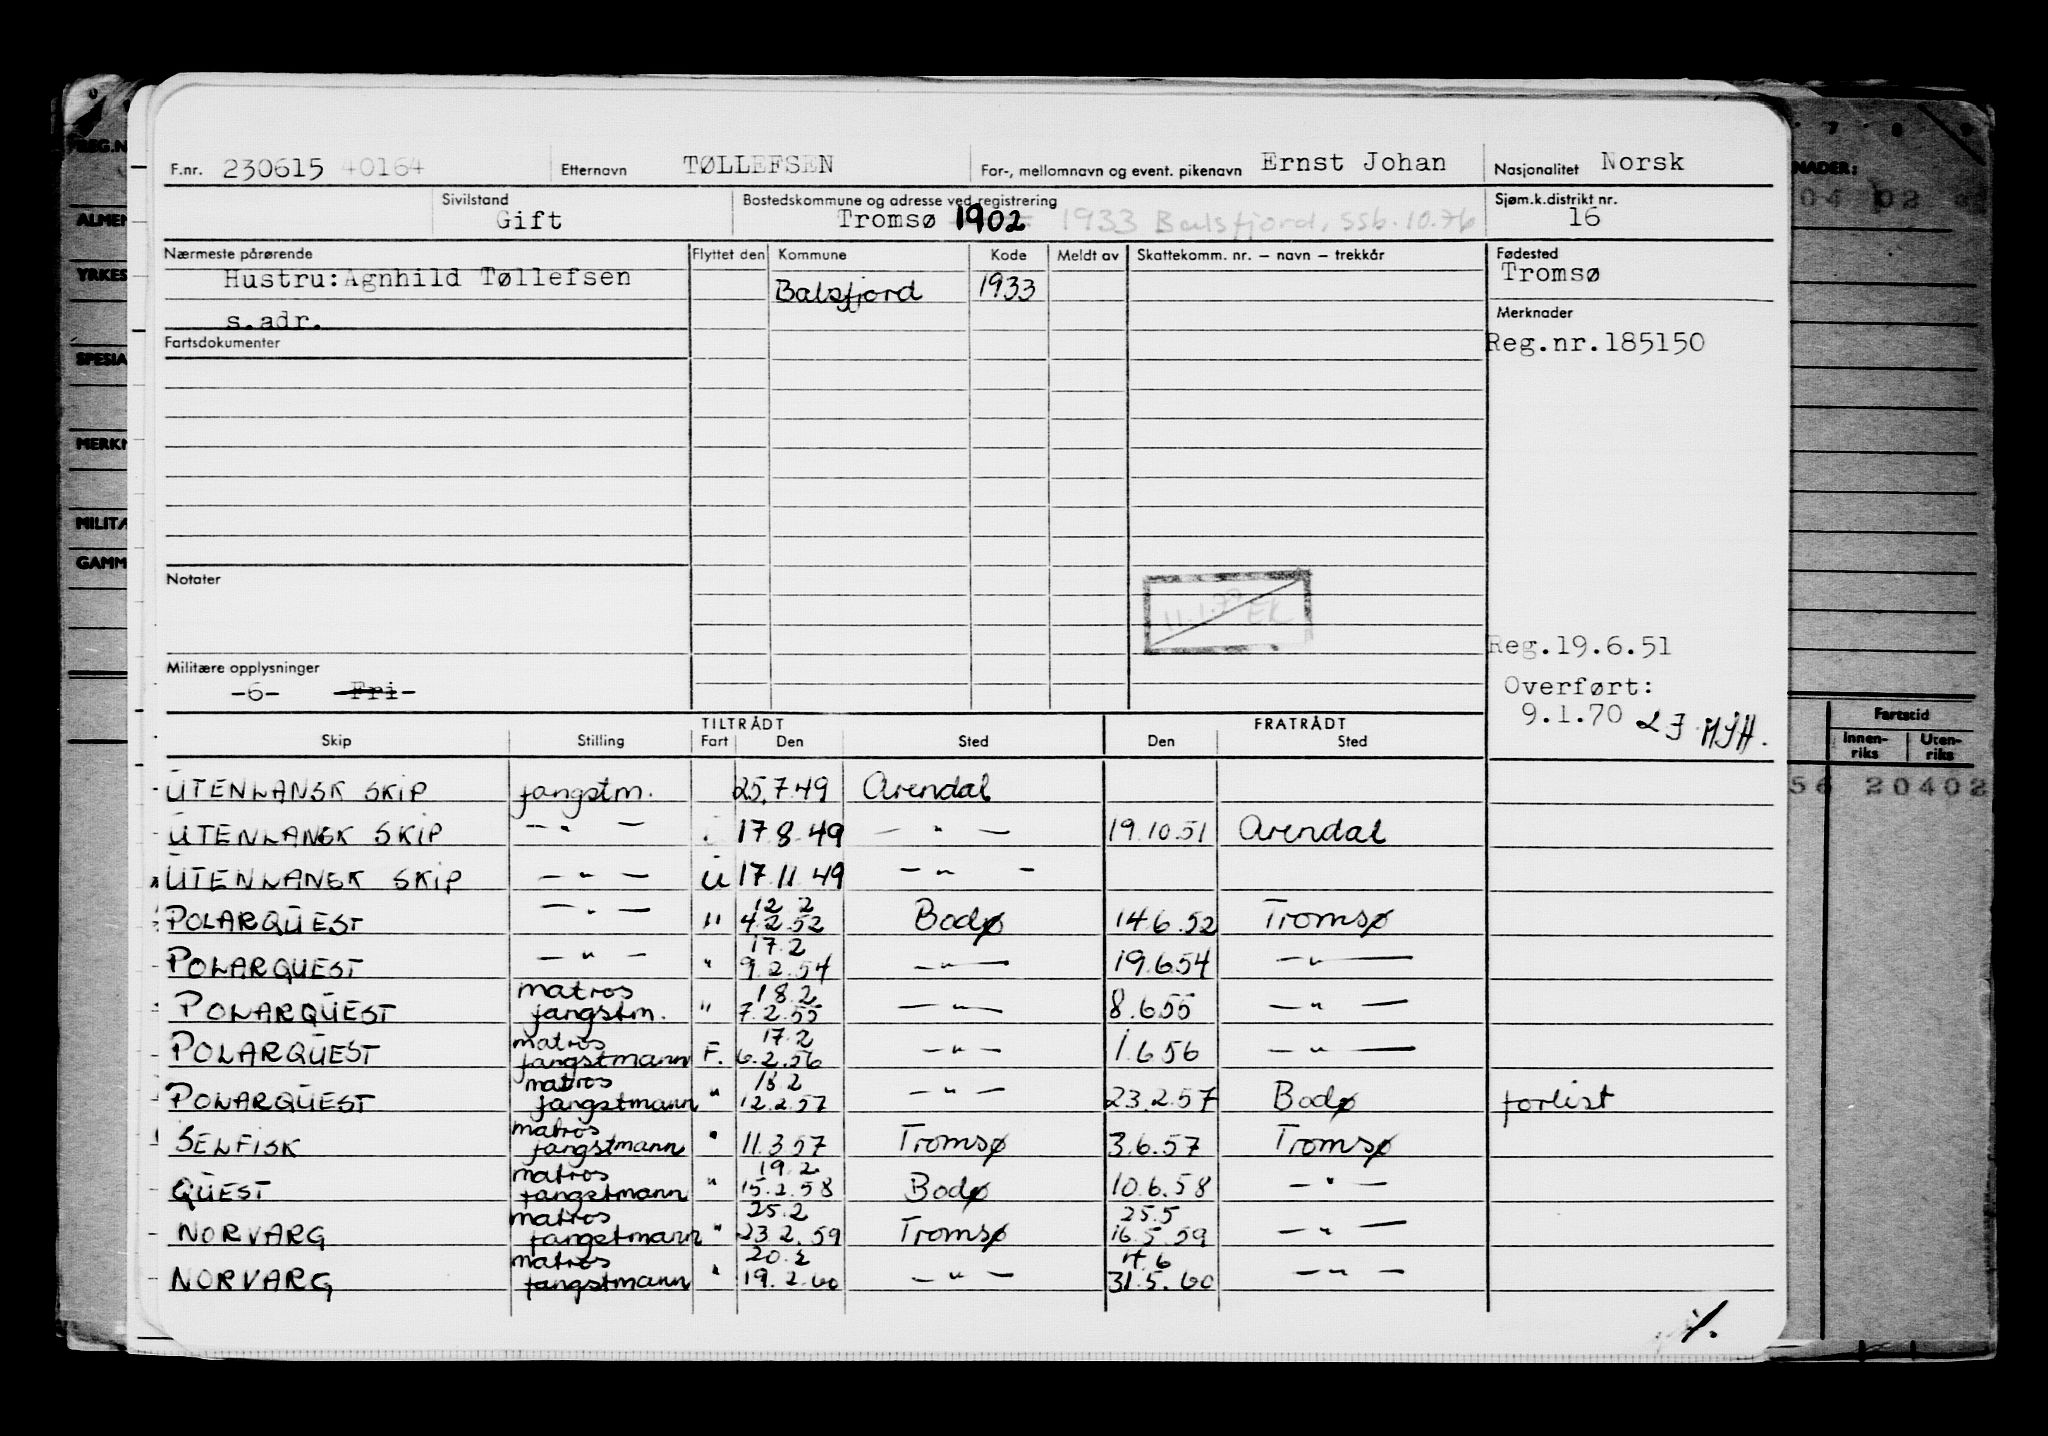 F.nr. 230615 40164 Etternavn TØLLEFSEN For-, mellomnavn og event. pikenavn Ernst Johan Nasjonalitet Norsk
Sivilstand Gift Bostedskommune og adresse ved registrering Tromsø 1902 1933 Balsfjord, ssb. 10.76 Sjøm.k.distrikt nr. 16
Nærmeste pårørende Flyttet den Kommune Kode Meldt av Skattekomm. nr. – navn – trekkår Fødested
Hustru: Agnhild Tøllefsen Balsfjord 1933 Tromsø
s.adr. Merknader
Fartsdokumenter Reg.nr.185150
Notater
11.1.77 EK
Reg.19.6.51
Militære opplysninger
-6- -Fri- Overført:
9.1.70
TILTRÅDT FRATRÅDT
Skip Stilling Fart Den Sted Den Sted
UTENLANSK SKIP fangstm. 25.7.49 Arendal
UTENLANSK SKIP — " — 17.8.49 — " — 19.10.51 Arendal
UTENLANSK SKIP — " — U 17.11.49 — " —
POLARQUEST — " — " 12.2 4.2.52 Bodø 14.6.52 Tromsø
POLARQUEST — " — " 17.2 9.2.54 — " — 19.6.54 — " —
POLARQUEST matros fangstm. " 18.2 7.2.55 — " — 8.6.55 — " —
POLARQUEST matros fangstmann F. 17.2 6.2.56 — " — 1.6.56 — " —
POLARQUEST matros fangstmann " 18.2 12.2.57 — " — 23.2.57 Bodø forlist
SELFISK matros fangstmann " 11.3.57 Tromsø 3.6.57 Tromsø
QUEST matros fangstmann " 19.2 15.2.58 Bodø 10.6.58 — " —
NORVARG matros fangstmann " 25.2 23.2.59 Tromsø 25.5 16.5.59 — " —
NORVARG matros fangstmann " 20.2 19.2.60 — " — 4.6 31.5.60 — " —
REG.N
ALMEN
YRKES
SPESIA
MERKN
MILITÆ
GAMM
7 8 9
NADER:
04 02
Fartstid
Innen-riks Uten-riks
56 20402